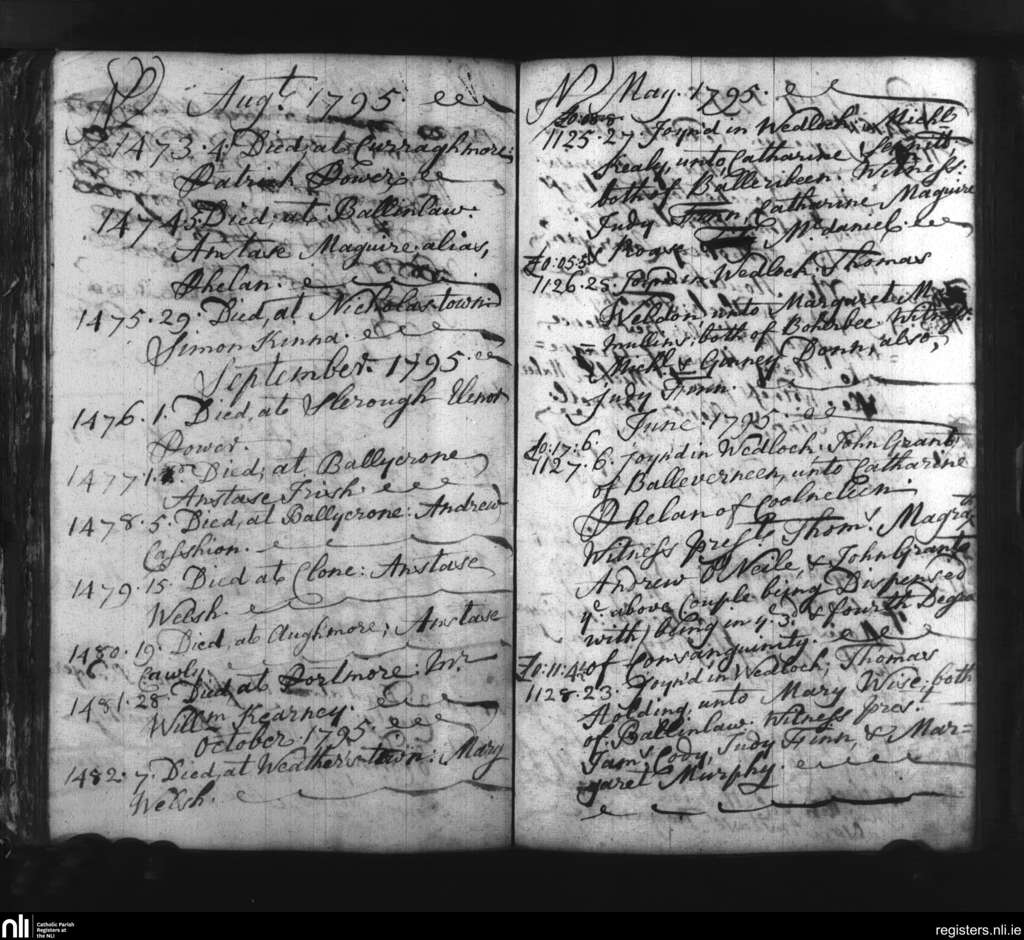 Augt. 1795.
1473. 4. Died, at Curraghmore;
Patrick Power.
1474. 5. Died, at Ballinlaw.
Anstase Maguire alias,
Phelan.
1475. 29. Died, at Nicholastown
Simon Kinna.
September. 1795.
1476. 1. Died, at Slerough Elenor
Power.
1477. 1. Died, at Ballycrone
Anstase Irish.
1478. 5. Died, at Ballycrone: Andrew
Casshion.
1479. 15. Died at Clone: Anstase
Welsh.
1480. 19. Died, at Aughmore; Anstase
Cawly.
1481. 28. Died at Portmore: Mr
Willm Kearney.
October. 1795.
1482. 7. Died, at Weatherstown: Mary
Welsh.
May. 1795.
1125. 27. Joyn'd in Wedlock: Michl
Frealy, unto Catharine
both of Balleribeen. Witness:
Judy Finn, Catharine Maguire
& McDaniel.
£0:05:5
1126. 25. Joynd in Wedlock: Thomas
Weldon unto Margaret
Mullins: both of Boherbee Witness:
Michl & Ginney Donn, also,
Judy Finn.
June. 1795.
£0:17:6.
1127. 6. Joyn'd in Wedlock. John Grant
of Balleverneen, unto Catharine
Phelan of Coolnelien:
Witness prest. Thoms. Magrath
Andrew O'Neile, & John Grant
ye. above Couple being Dispensed
with, being in ye 3d. & fourth Degree
£0:11:4½ of Consanguinity:
1128. 23. Joyn'd in Wedlock; Thomas
Holding, unto Mary Wise, both
of Ballinlaw. Witness pres.
Jams. Cody, Judy Finn, & Mar=
garet Murphy.
nli
Catholic Parish
Registers at
the NLI
registers.nli.ie